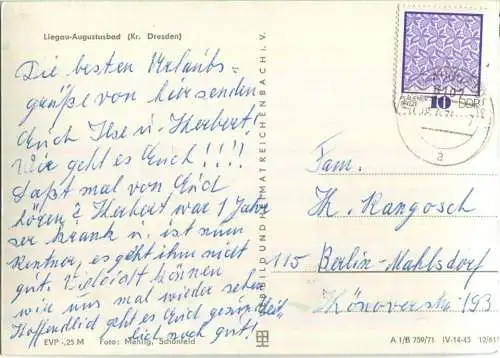 Liegau-Augustusbad (Kr. Dresden)
Die besten Urlaubs-
grüße von hier senden
Euch Ilse u. Herbert!
Wie geht es Euch !!!!
Laßt mal von Euch
hören? Herbert war 1 Jahr
sehr krank u. ist nun
Rentner, es geht ihm nicht
gut. Vieleicht können
wir uns mal wieder sehen
Hoffendlich geht es Euch gesundheit-
lich noch gut!
EVP -,25 M Foto: Mehlig, Schönfeld
BILD UND HEIMAT REICHENBACH I. V.
PLAUENER SPITZE
10
DDR
8101
a
Fam.
Th. Rangosch
115 Berlin-Mahlsdorf
193
A 1/B 759/71 IV-14-45 12/61